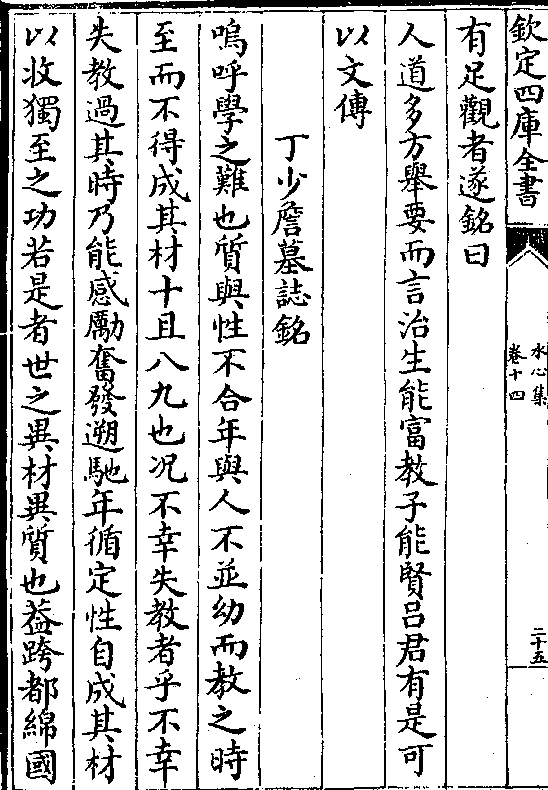 欽定四庫全書
水心集
卷十四
二十五
有足觀者遂銘曰
人道多方舉要而言治生能富教子能賢吕君有是可
以文傳
丁少詹墓誌銘
嗚呼學之難也質與性不合年與人不並幼而教之時
至而不得成其材十且八九也况不幸失教者乎不幸
失教過其時乃能感勵奮發遡馳年循定性自成其材
以收獨至之功若是者世之異材異質也葢跨都綿國